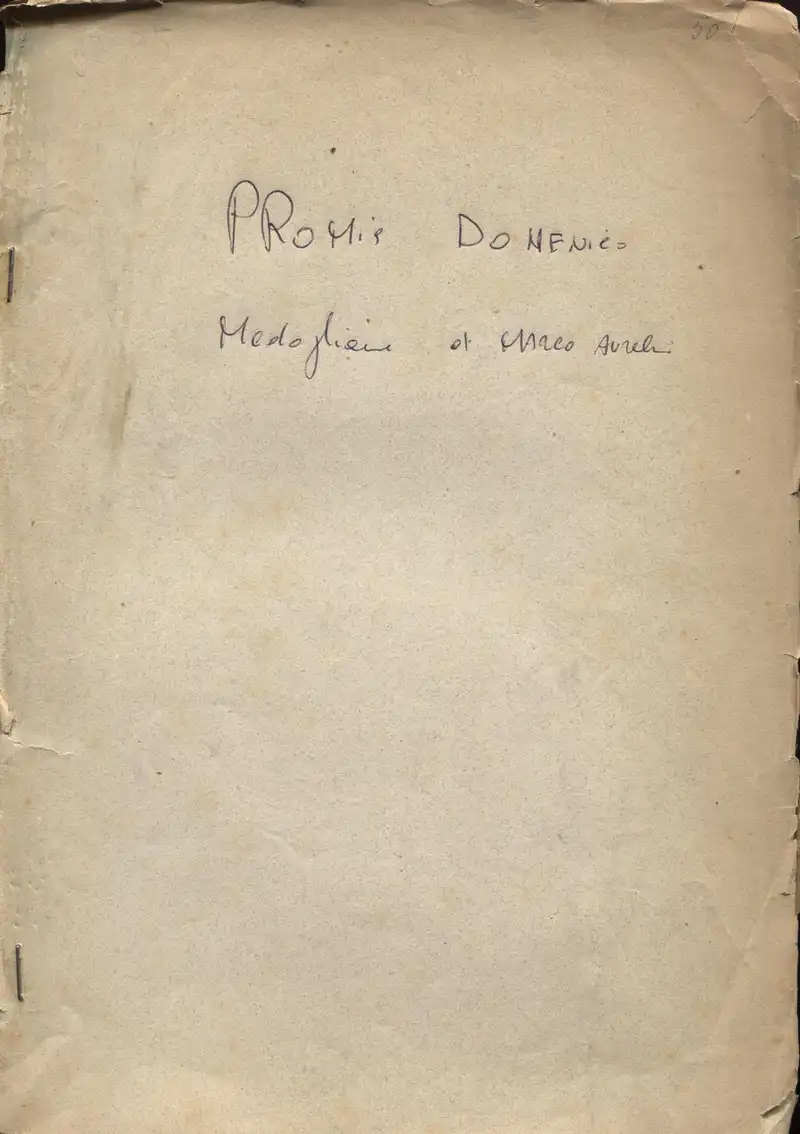 50
PROMIS DOMENICO
Medaglione di MARCO AURELIO